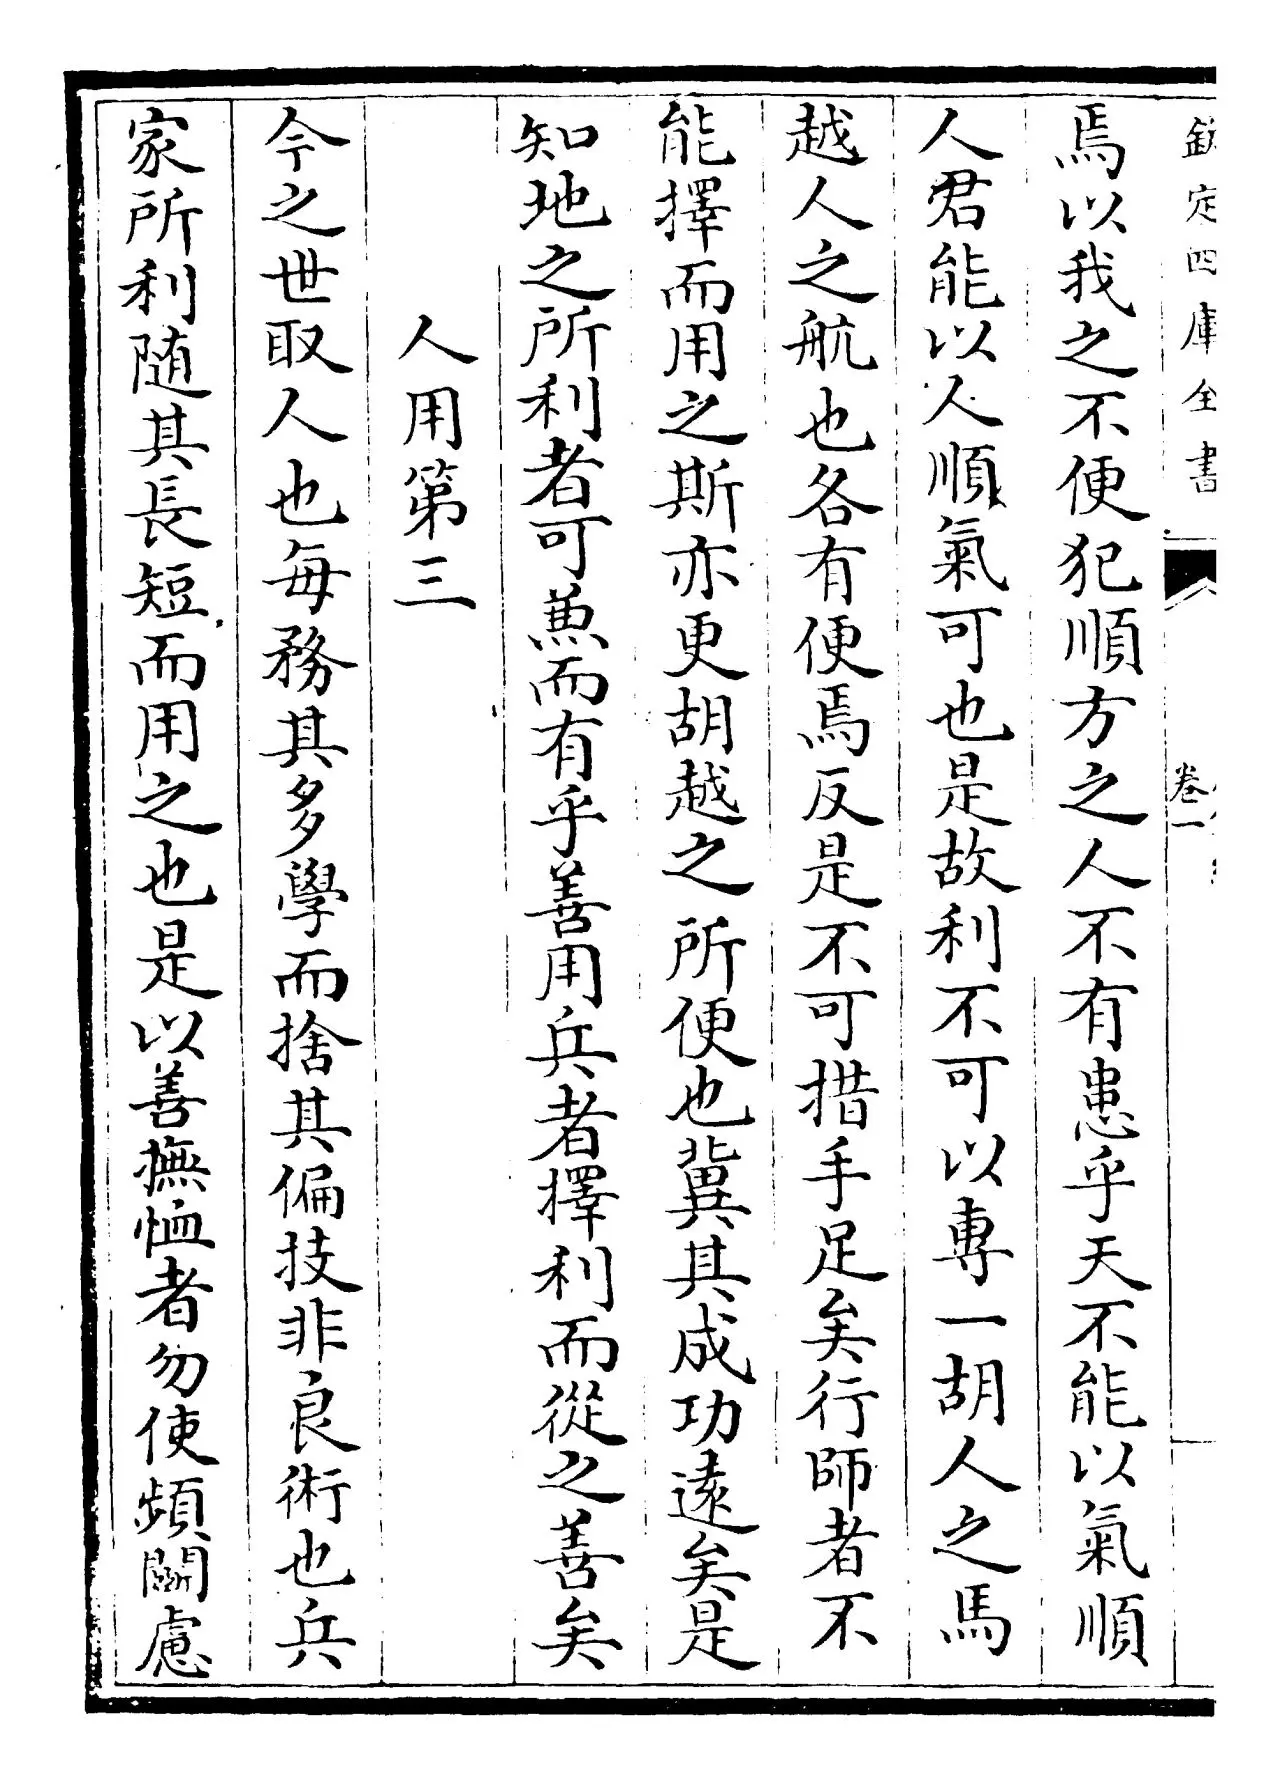 欽定四庫全書
卷一
焉以我之不便犯順方之人不有患乎天不能以氣順
人君能以人順氣可也是故利不可以專一胡人之馬
越人之航也各有便焉反是不可措手足矣行師者不
能擇而用之斯亦更胡越之所便也冀其成功遠矣是
知地之所利者可兼而有乎善用兵者擇利而從之善矣
人用第三
今之世取人也每務其多學而捨其偏技非良術也兵
家所利随其長短而用之也是以善撫恤者勿使頻鬭慮